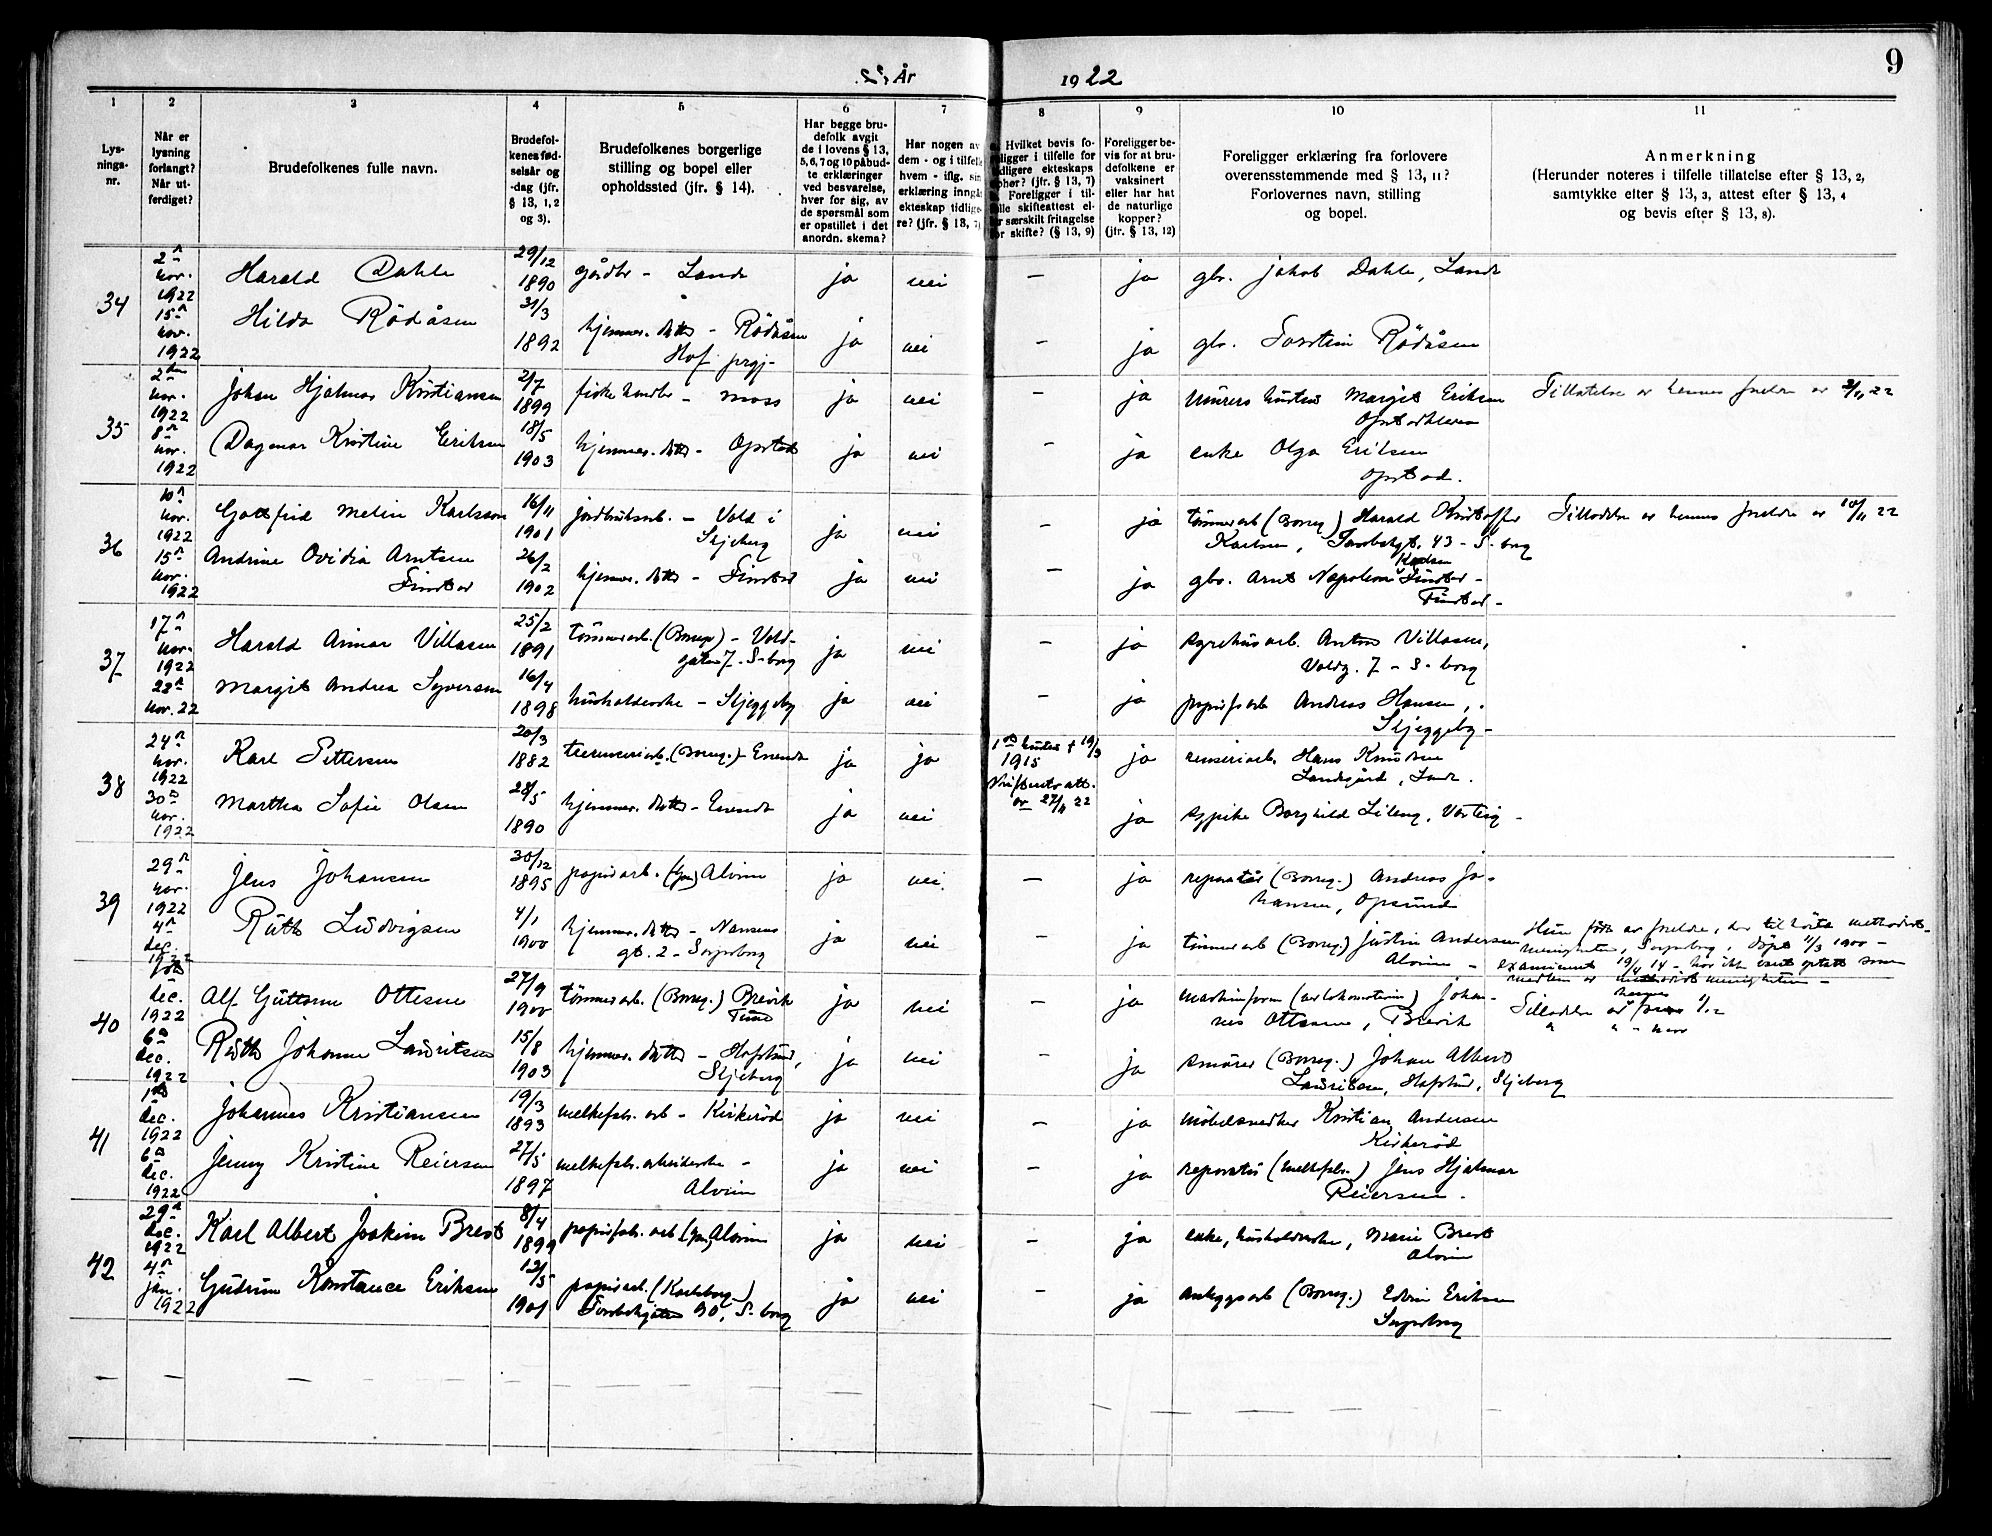 År 1922
9
1 2 3 4 5 6 7 8 9 10 11
Lys-
nings-
nr.
Når er
lysning
forlangt?
Når ut-
ferdiget?
Brudefolkenes fulle navn.
Brudefol-
kenes fød-
selsår og
-dag (jfr.
§ 13, 1, 2
og 3).
Brudefolkenes borgerlige
stilling og bopel eller
opholdssted (jfr. § 14).
Har begge bru-
defolk avgit
de i lovens § 13,
5, 6, 7 og 10 påbud-
te erklæringer
ved besvarelse,
hver for sig, av
de spørsmål som
er opstillet i det
anordn. skema?
Har nogen av
dem - og i tilfelle
hvem - iflg. sin
erklæring inngåt
ekteskap tidlige-
re? (jfr. § 13, 7)
Hvilket bevis fo-
religger i tilfelle for
tidligere ekteskaps
ophør? (jfr. § 13, 7)
Foreligger i til-
felle skifteattest el-
ler særskilt fritagelse
for skifte? (§ 13, 9)
Foreligger be-
vis for at bru-
defolkene er
vaksinert
eller har hat
de naturlige
kopper?
(jfr. § 13, 12)
Foreligger erklæring fra forlovere
overensstemmende med § 13, 11?
Forlovernes navn, stilling
og bopel.
Anmerkning
(Herunder noteres i tilfelle tillatelse efter § 13, 2,
samtykke efter § 13, 3, attest efter § 13, 4
og bevis efter § 13, 8).
34
2n nov. 1922
Harald Dahle 29/12 1890 gårdbr - Lande ja nei — ja gbr. Jakob Dahle, Lande
15n nov. 1922
Hilda Rödåsen 31/3 1892 hjemmev. datter - Rödåsen ja nei — ja gbr. Torstein Rödåsen
Hof prgj.
35
2den nov. 1922
Johan Hjalmar Kristiansen 2/7 1899 fiskehandler - Moss ja nei — ja murers hustru Margit Eriksen
Tillatelse av hennes foreldre av 2/11 22
8n nov. 1922
Dagmar Kristine Eriksen 18/5 1903 hjemmev. datter - Opstad ja nei — ja enke Olga Eriksen
Opstad.
36
10n nov. 1922
Gottfrid Melin Karlsson 16/11 1901 jordbruksarb. - Vold i
Skjeberg ja nei — ja tömmerarb (Borreg.) Harald Kristoffer
Karlsen, 43 - S-borg
Tilladelse av hennes foreldre av 10/11 22
15n nov. 1922
Andrine Ovidia Arntsen
Finstad 26/2 1902 hjemmev. datter - Finstad ja nei — ja gbr. Arnt Napoleon Karlsen Finstad -
Finstad -
37
17n nov. 1922
Harald Annar Villasen 25/2 1891 tömmerarb. (Borreg.) - Vold-
gaten 7. S-borg ja nei — ja syrehusarb. Anton Villasen,
Voldg. 7 - S-borg
22n nov. 22
Margit Andrea Syversen 16/4 1898 husholderske - Skjeggeby ja nei — ja papirfabr. Andreas Hansen,
Skjeggeby -
38
24n nov. 1922
Karl Pettersen 20/3 1882 (Borreg.) - Enenda ja ja 1ste hustru † 19/3
1915
Skifterets att.
av 27/11 22 ja renseriarb. Hans Knudsen
Landsgård, Lande.
30te nov. 1922
Martha Sofie Olsen 28/5 1890 hjemmev. datter - Enenda ja nei ja sypike Borghild Lileng, Varteig -
39
29n nov. 1922
Jens Johansen 30/12 1895 papirarb. Alvim ja nei — ja reparatør (Borreg.) Andreas Jo-
hansen, Opsund
4n dec. 1922
Ruth Ludvigsen 4/1 1900 hjemmev. datter - Nansens
gt. 2 - Sarpsborg ja nei — ja tömmerarb (Borreg.) Justin Andersen
Alvim -
Hun född av foreldre, der tilhörte methodist-
menigheten, Sarpsborg, döpt 11/3 1900 -
examinert 19/4 14 - har ikke været optatt som
medlem av methodistmenigheten -
40
dec. 1922
Alf Guttorm Ottesen 27/9 1900 tömmerarb. (Borreg.) Brevik
Tune ja nei — ja maskinform (avlokomotivin) Johan-
nes Ottesen, Brevik
Tilladelse av hennes 1/12
6te dec. 1922
Ruth Johanne Lauritsen 15/8 1903 hjemmev. datter - Hafslund,
Skjeberg ja nei — ja smörer (Borreg.) Johan Albert
Lauritsen, Hafslund, Skjeberg
41
1ste dec. 1922
Johannes Kristiansen 19/3 1893 melkefabr. arb - Kirkeröd ja nei — ja möbelsnedker Kristian Andersen
Kirkeröd
6te dec. 1922
Jenny Kristine Reiersen 27/5 1897 melkefabr. arbeiderske -
Alvim ja nei — ja reparatör (melkefabr.) Jens Hjalmar
Reiersen.
42
29n dec. 1922
Karl Albert Joakim Brest 8/4 1899 papirfabr. arb. Alvim ja nei — ja enke, husholderske, Marie Brest
Alvim
4n jan. 1922
Gudrun Konstance Eriksen 12/5 1901 papirarb. (Karlsborg -)
90, S-borg ja nei — ja anleggsarb (Borreg.) Edvin Eriksen
Sarpsborg